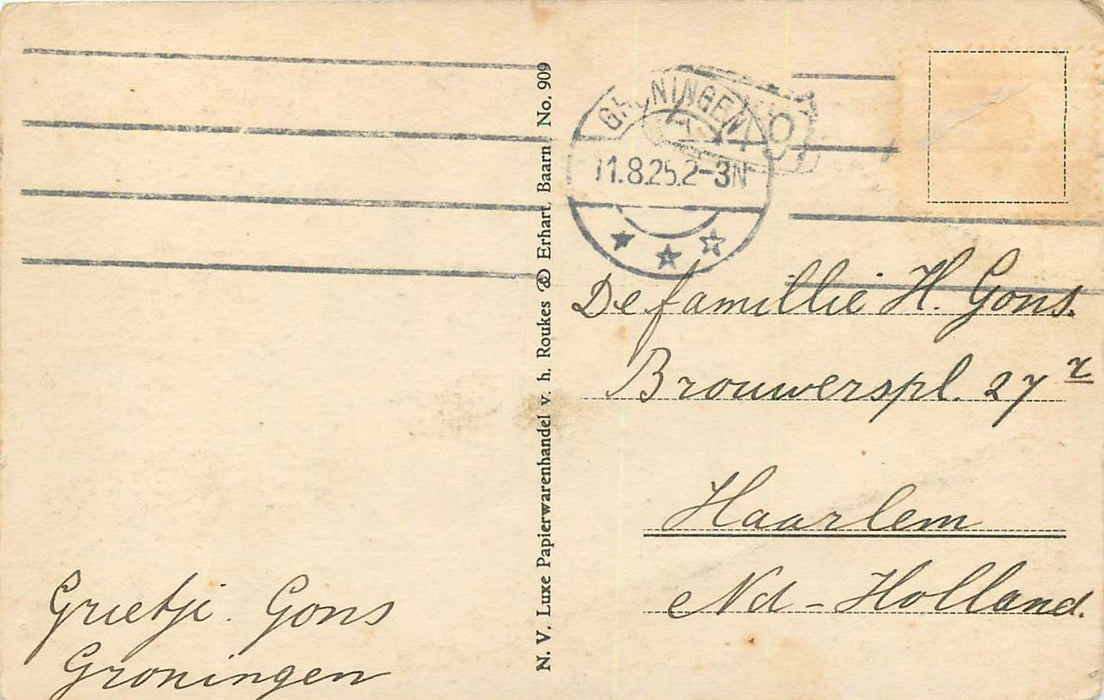 GRONINGEN
11.8.25.2-3N
N. V. Luxe Papierwarenhandel v. h. Roukes & Erhart, Baarn No. 909
De famillie H. Gons.
Brouwerspl. 27 r
Haarlem
Nd - Holland.
Grietje Gons
Groningen